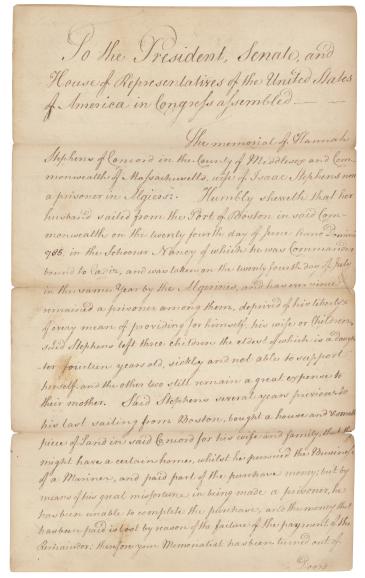 To the President, Senate, and
House of Representatives of the United States
of America in Congress assembled
The memorial of Hannah
Stephens of Concord in the County of Middlesex and Com-
monwealth of Massachusetts, wife of Isaac Stephens now
a prisoner in Algiers: Humbly sheweth that her
husband sailed from the Port of Boston in said Com-
monwealth on the twenty fourth day of June Anno Domini
in the Schooner Nancy of which he was Commander
bound to Cadiz, and was taken on the twenty fourth day of July
in the same Year by the Algerines, and has ever since
remained a prisoner among them, deprived of his liberty &
of every mean of providing for himself, his wife or Children,
said Stephens left three children the eldest of which is a daugh-
ter fourteen years old, sickly and not able to support
herself and the other two still remain a great expense to
their mother. Said Stephens several years previous to
his last sailing from Boston, bought a house and small
piece of Land in said Concord for his wife and family, that they
might have a certain home, whilst he pursued the Business
of a Mariner, and paid part of the purchase money; but by
means of his great misfortune in being made a prisoner, he
has been unable to complete the purchase, and the money that
has been paid is lost by reason of the failure of the payment of the
Remainder; therefore your Memorialist has been turned out of
Doors